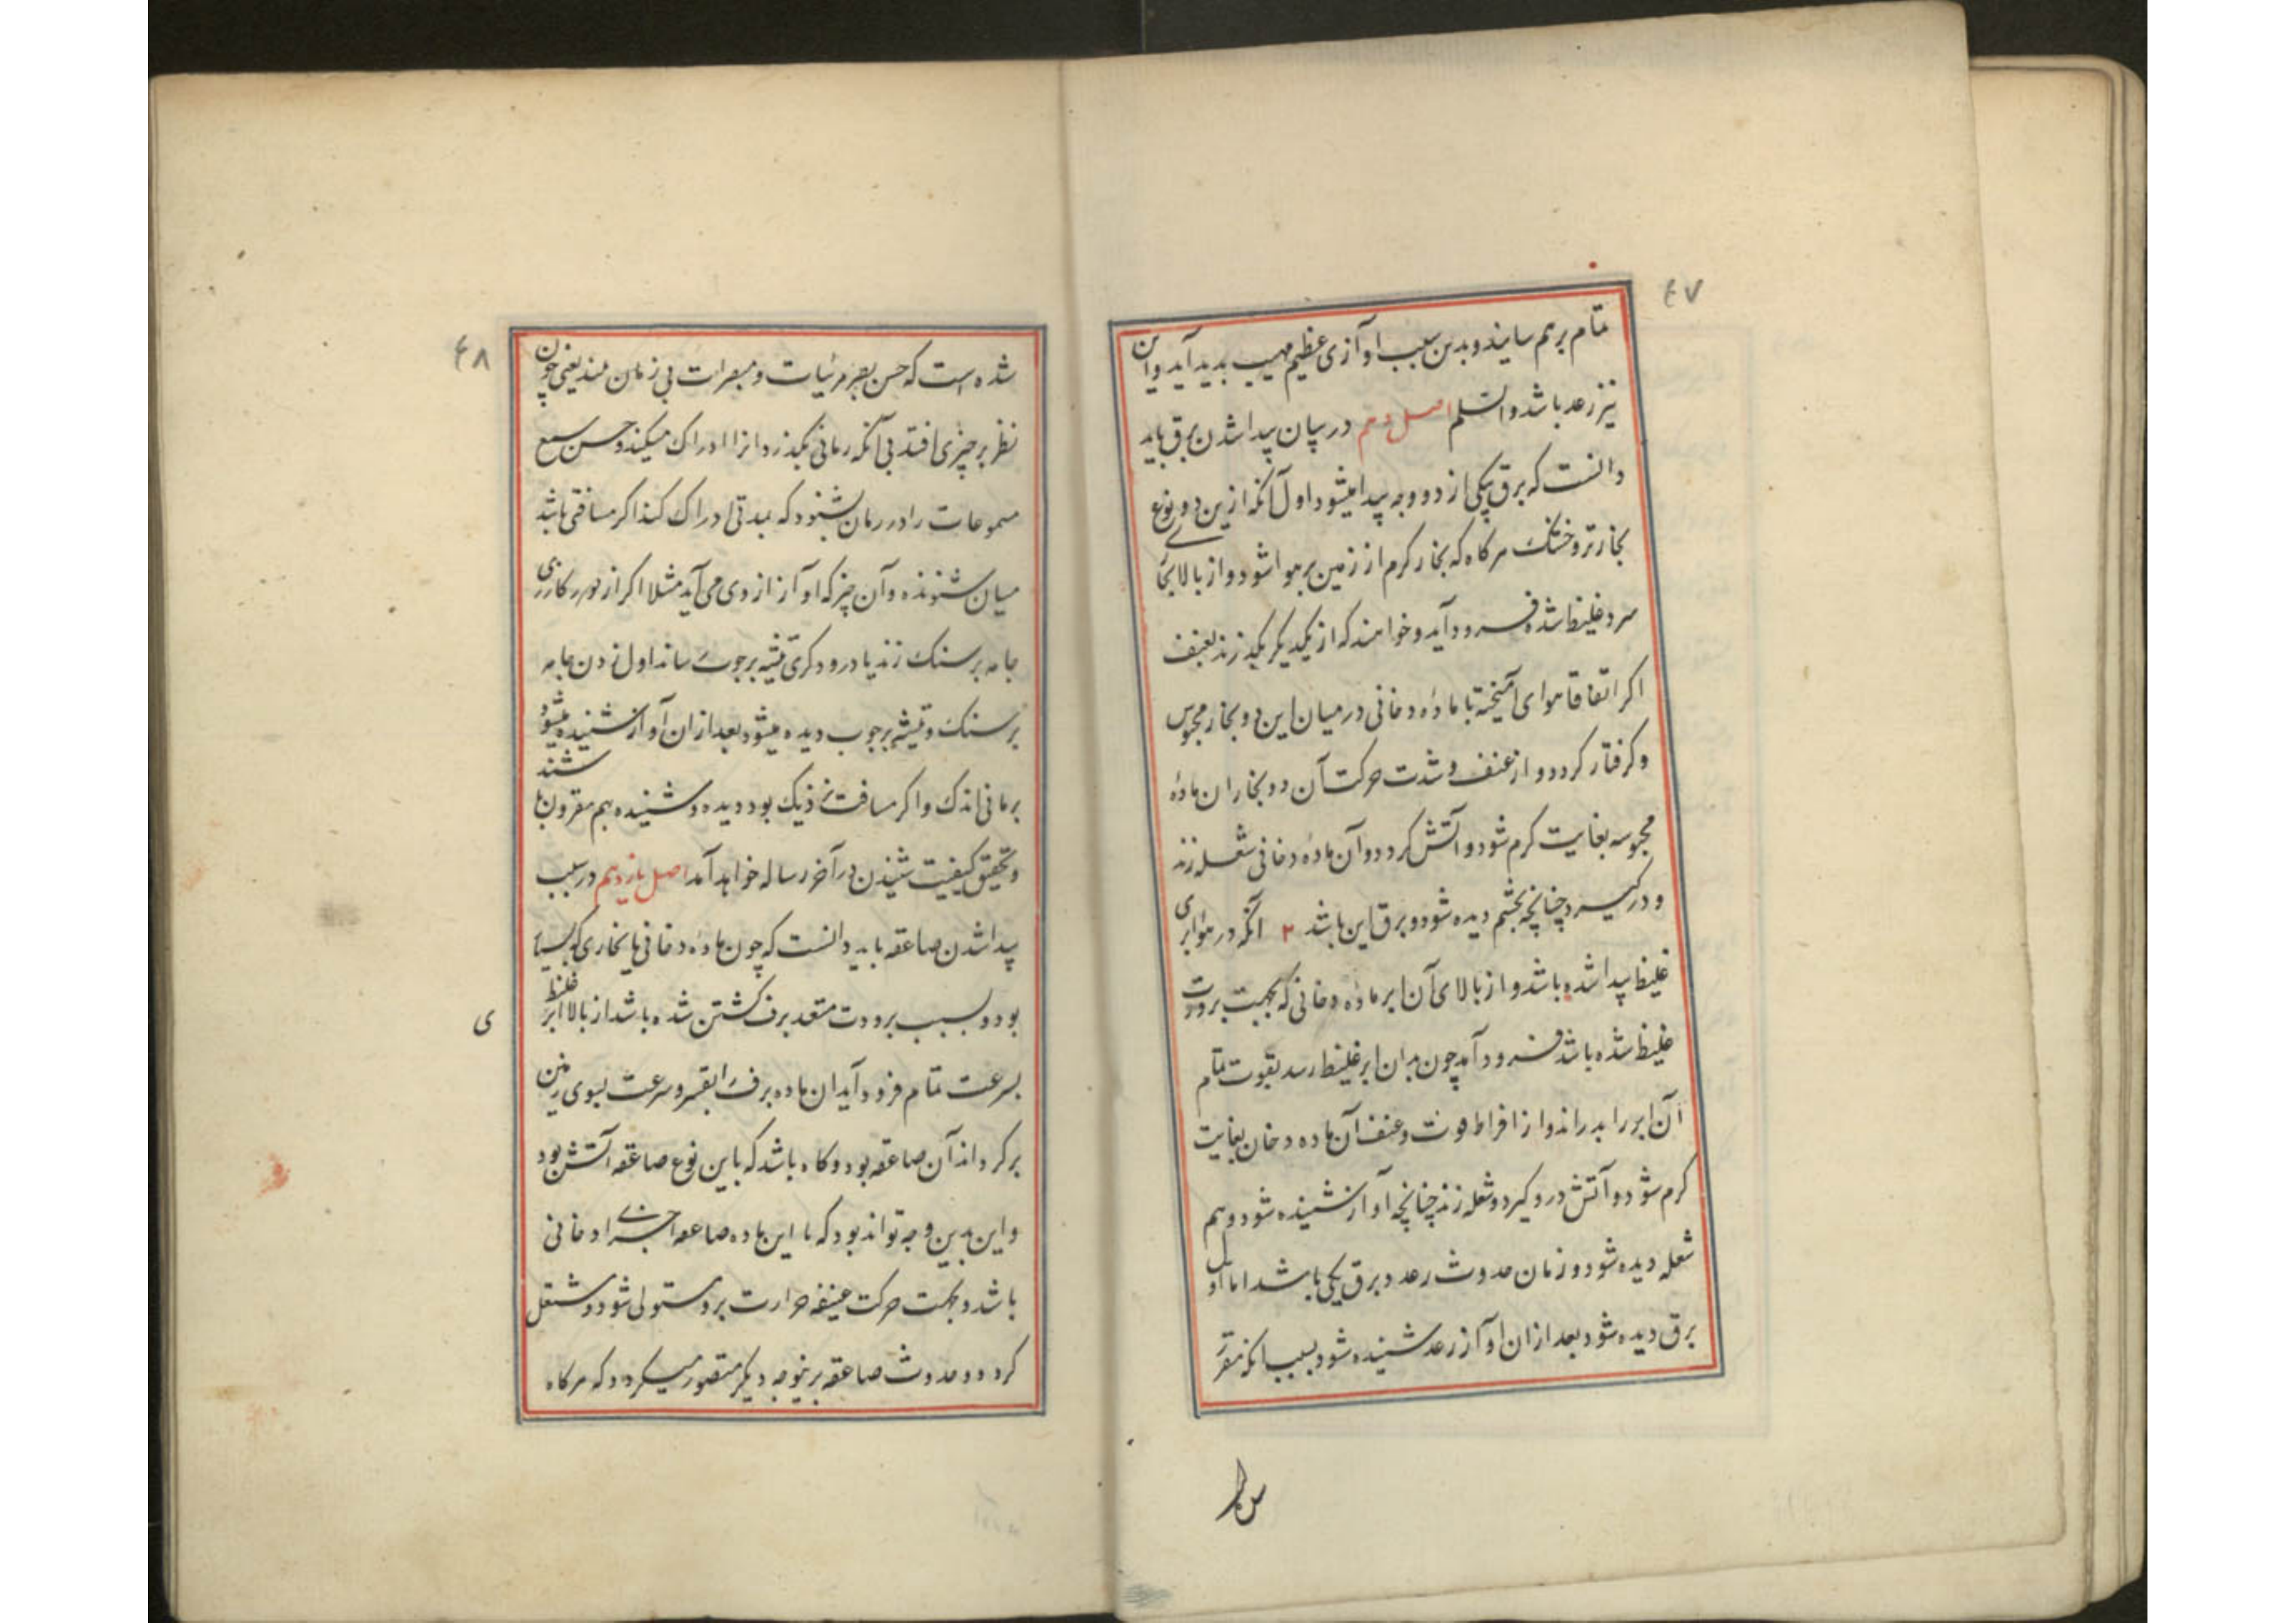 ۴۷
تمام برهم سایند و بدین سبب اوآزی عظیم مهیب بدید آید و این
نیز رعد باشد والسلم اصل دهم در بیان پیدا شدن برق باید
دانست که برق یکی از دو وجه پیدا میشود اول آنکه ازین دو نوع
بخار تر و خشک هرکاه که بخار کرم از زمین بر هوا شود و از بالا بخار
سرد غلیظ شده فرود آید و خواهند که از یکدیکر بکذرند بعنف
اکر اتفاقا هوای آمیخته با مادهٔ دخانی در میان این دو بخار محبوس
و کرفتار کردد و از عنف و شدت حرکت آن دو بخار ان مادهٔ
محبوسه بغایت کرم شود و آتش کردد و آن مادهٔ دخانی شعله زند
و درکیرد چنانچه بچشم دیده شود و برق این باشد ۲ آنکه در هوا ابری
غلیظ پیدا شده باشد و از بالای آن ابر مادهٔ دخانی که بجهت برودت
غلیظ شده باشد فرود آید چون بدان ابر غلیظ رسد بقوت تمام
آن ابر را بدراند و از افراط قوت و عنف آن ماده دخان بغایت
کرم شود و آتش درو کیرد و شعله زند چنانچه آواز شنیده شود و هم
شعله دیده شود و زمان حدوث رعد و برق یکی باشد اما اول
برق دیده شود بعد ازان اوآز رعد شنیده شود بسبب انکه مقرر
۴۸
شده است که حس بصر مرئیات و مبصرات بی زمان بیند یعنی چون
نظر بر چیزی افتد بی آنکه زمانی بکذرد انرا ادراک میکند و حس سمع
مسموعات را در زمان شنود که بمدتی ادراک کند اکر مسافتی باشد
میان شنونده و آن چیز که اوآز از وی می آید مثلا اکر از دور کازری
جامه بر سنک زند یا درودکری تیشه بر چوب ساند اول زدن جامه
بر سنک و تیشه بر چوب دیده میشود بعد ازان آواز شنیده میشود
بزمانی اندک و اکر مسافت نزدیک بود دیده و شنیده بهم مقرون باشند
و تحقیق کیفیت شنیدن در آخر رساله خواهد آمد اصل یازدهم در سبب
پیدا شدن صاعقه باید دانست که چون مادهٔ دخانی یا بخاری که بسیار
بود و بسبب برودت متعد برف کشتن شده باشد از بالا ابر غلیظ
ی
بسرعت تمام فرود آید ان ماده برف را بقسر و سرعت بسوی زمین
برکرداند آن صاعقه بود و کاه باشد که باین نوع صاعقه آتش بود
و این بدین وجه تواند بود که با این ماده صاعقه اجزای دخانی
باشد و بجهت حرکت عنیفه حرارت برو مستولی شود و مشتعل
کردد و حدوث صاعقه بر نوجه دیکر متصور میکردد که هرکاه